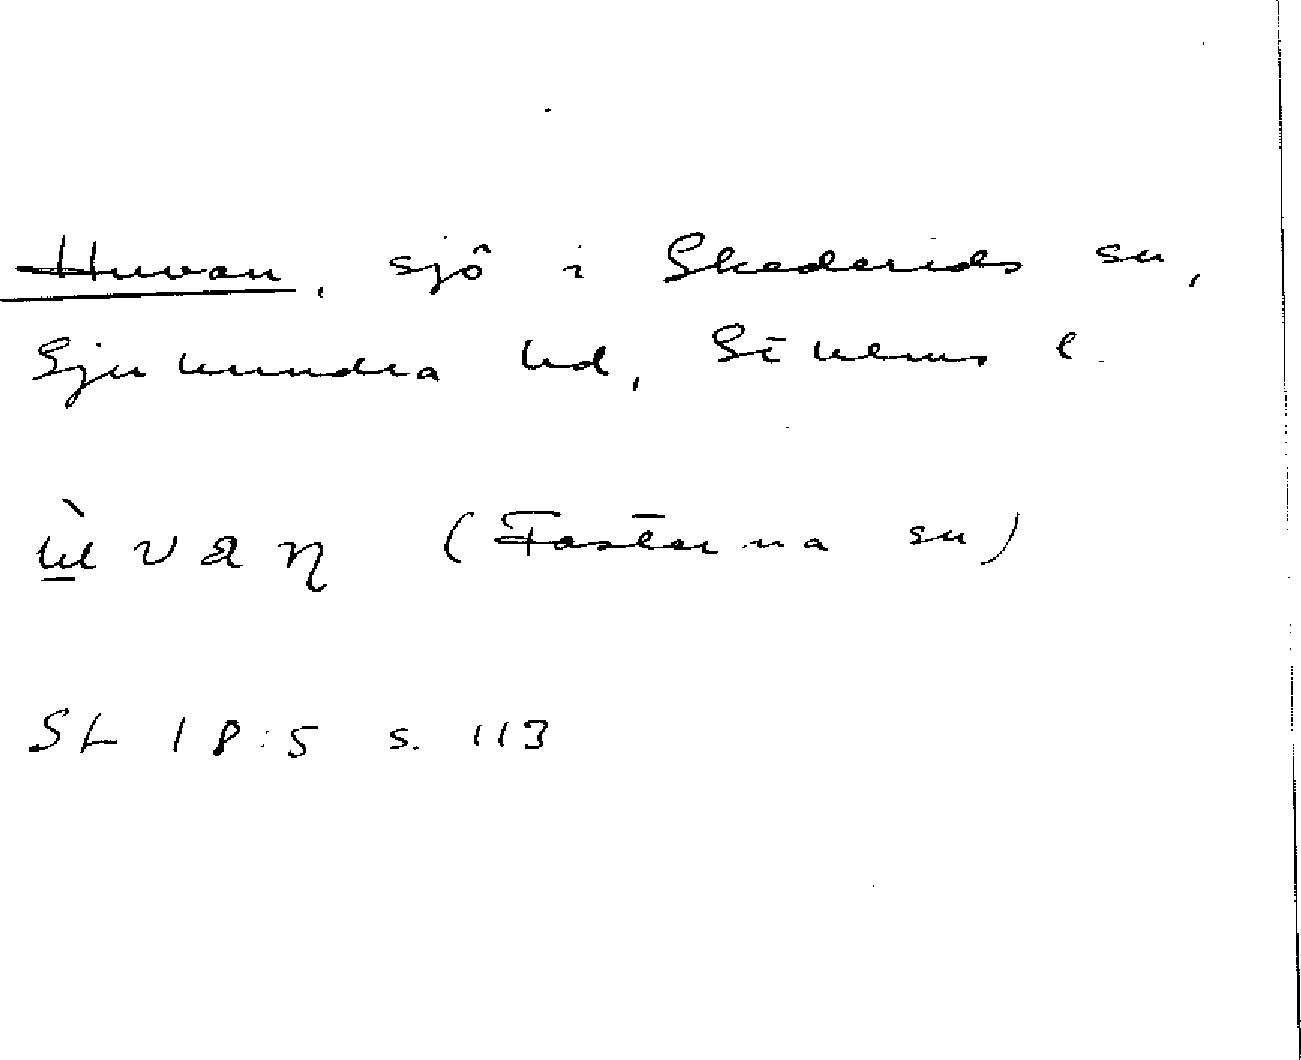 Huvan, sjö i Skederids sn,
Sjuhundra hd, Sthlms l.
(Fasterna sn)
SL 18:5 s. 113